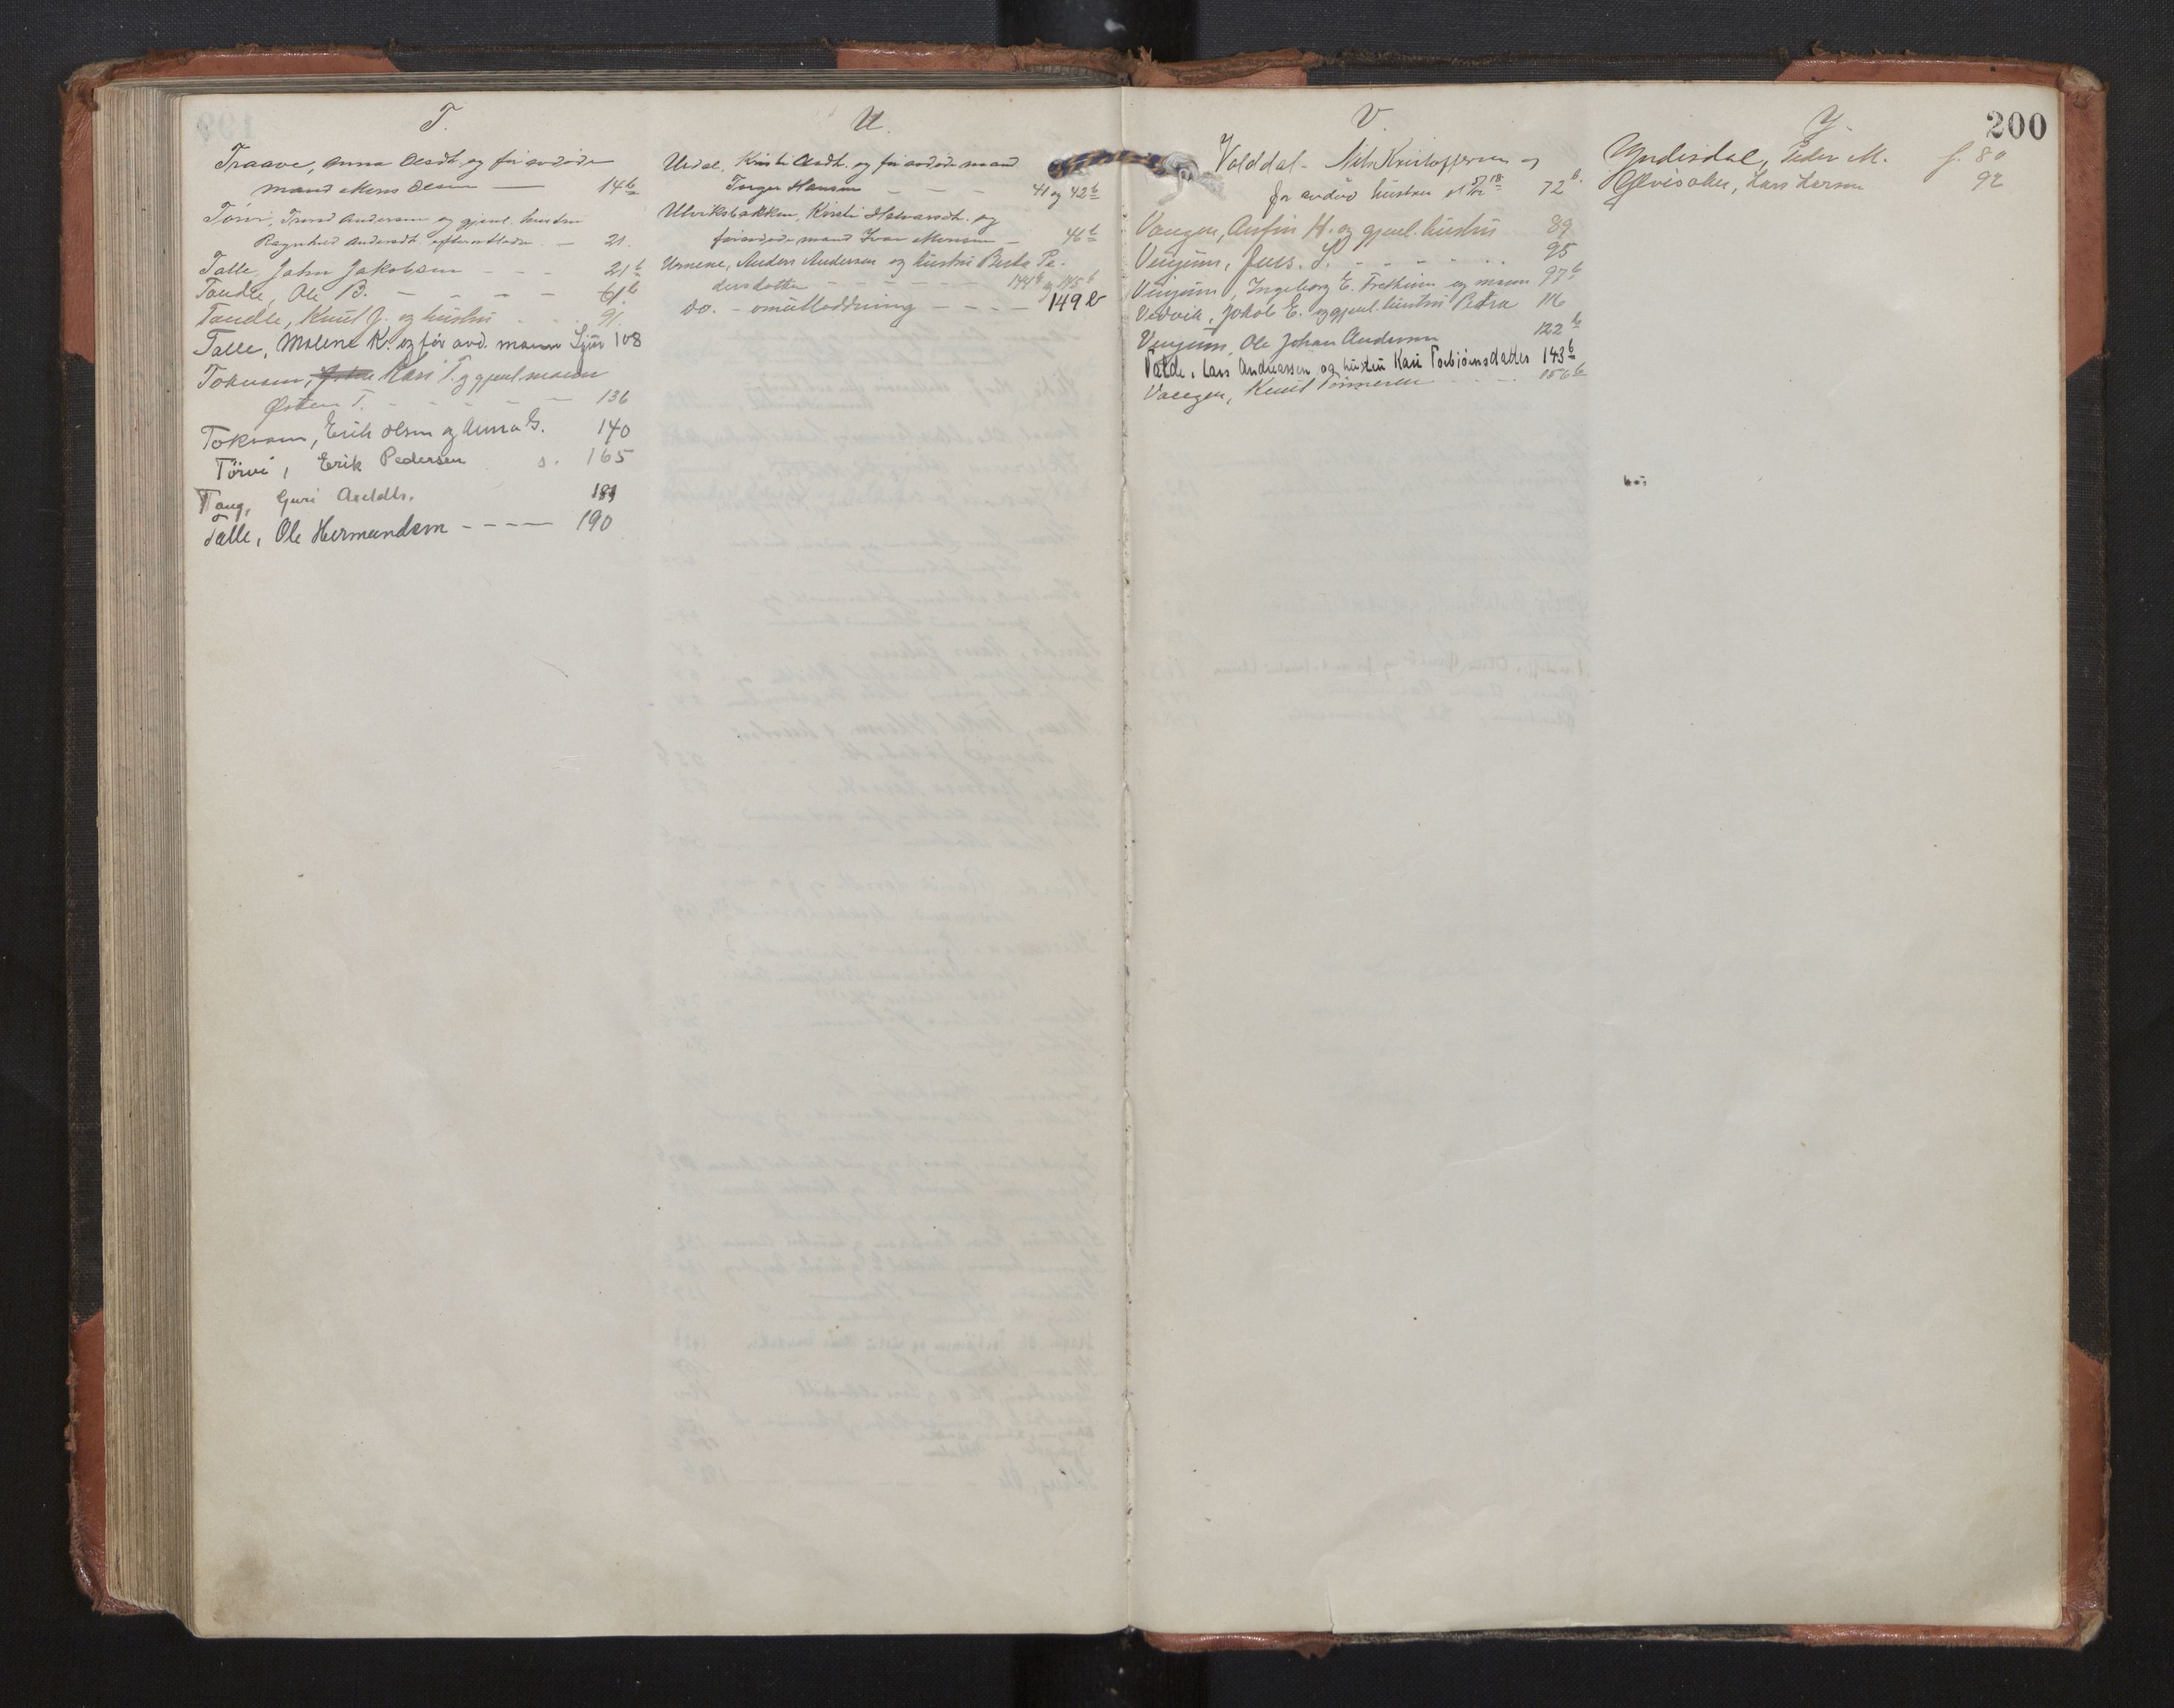 T.
Traave, Anna Olsdt. og før avdøde
mand Mons Olsen — 14b
Tørvi, Trond Anderssen og gjenl. hustru
Ragnhild Andersdt. efterutlodn. — 21.
Talle, John Jakobsen - - - 21b
Tandle, Ole B. - - - 61b
Tandle, Knut J. og hustru 91
Talle, Malene K. og før avd. mann Sjur 108
Tokvam, Kari T. og gjenl. mann
Østen T. - - - - - 136
Tokvam, Erik Olsen og Anna G. 140
Tørvi, Erik Pedersen s. 165
Taug, Guri Aseldtr. 189
Talle, Ole Hermundsen - - - - 190
U.
Urdal, Kirsti Olsdt. og før avdøde mand
Torger Hansen - - - 41 og 42b
Ulviksbakken, Kirsti Halvarsdt. og
før avdøde mand Ivar Monsen - 46b
Urnene, Anders Anderssen og hustru Brita Pe-
dersdotter - - - - - - - 144b og 145b
do. - omutlodning - - - - 149b
V.
Volddal - Nils Kristoffersen og
før avdød hustru 72b.
Vangen, Anfin H. og gjenl. hustru 89
Vinjum, Jens. S. - - - - - 95
Vinjum, Ingeborg E. Fretheim og mann 97b
Vedvik, Jakob E. og gjenl. hustru Petra 116
Vinjum, Ole Johan Andersen 122b
Valde, Lars Andreassen og hustru Kari Torbjørnsdatter 143b
Vangen, Knut Tørresen - - - 156b
Y.
200
Yndesdal, Peder M. f. 80
Ølvisaker, Lars Larsen 92